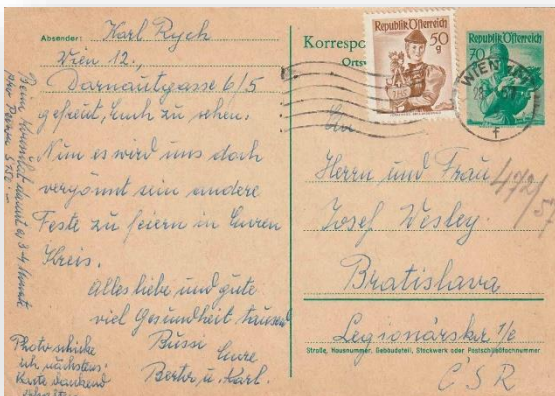 Absender: Karl Rych
Wien 12.,
Darnautgasse 6/5
gefreut, Euch zu sehen.
Nun es wird uns doch
vergönnt sein andere
Feste zu feiern in Euren
Kreis.
Alles liebe und gute
viel Gesundheit tausend
Bussi
Eure
Berta u. Karl.
Beim Konsulat dauert es 3-4 Monate
Photo schicke
ich nächstens.
Karte dankend
erhalten
Korrespo
Orts
Republik Österreich
50
g
Republik Österreich
70
WIEN
f
An
Herrn und Frau
Josef Wesley
Bratislava
Legionárska 1/e
Straße, Hausnummer, Gebäudeteil, Stockwerk oder Postschließfachnummer
ČSR
472/57